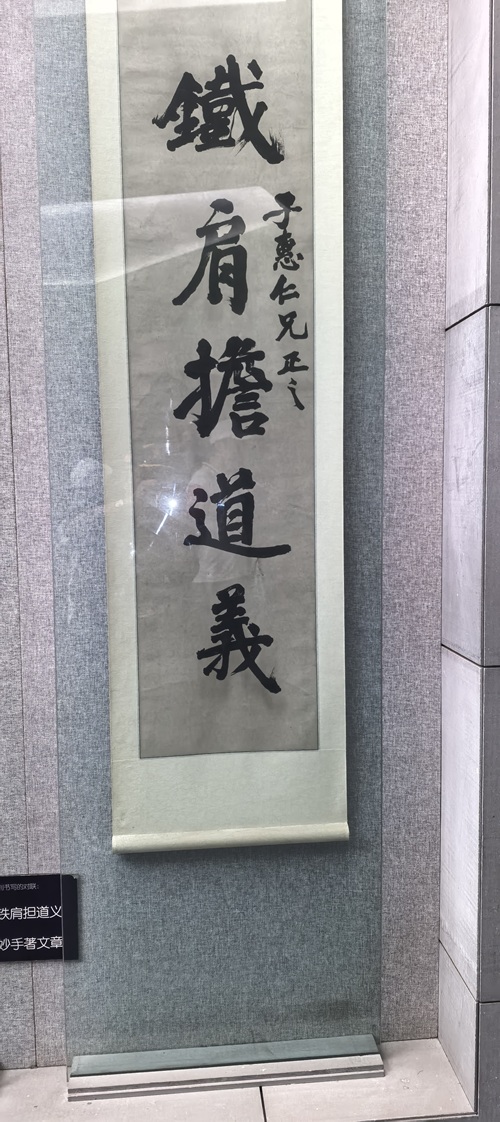 鐵肩擔道義
子惠仁兄正之
书写的对联：
铁肩担道义
妙手著文章